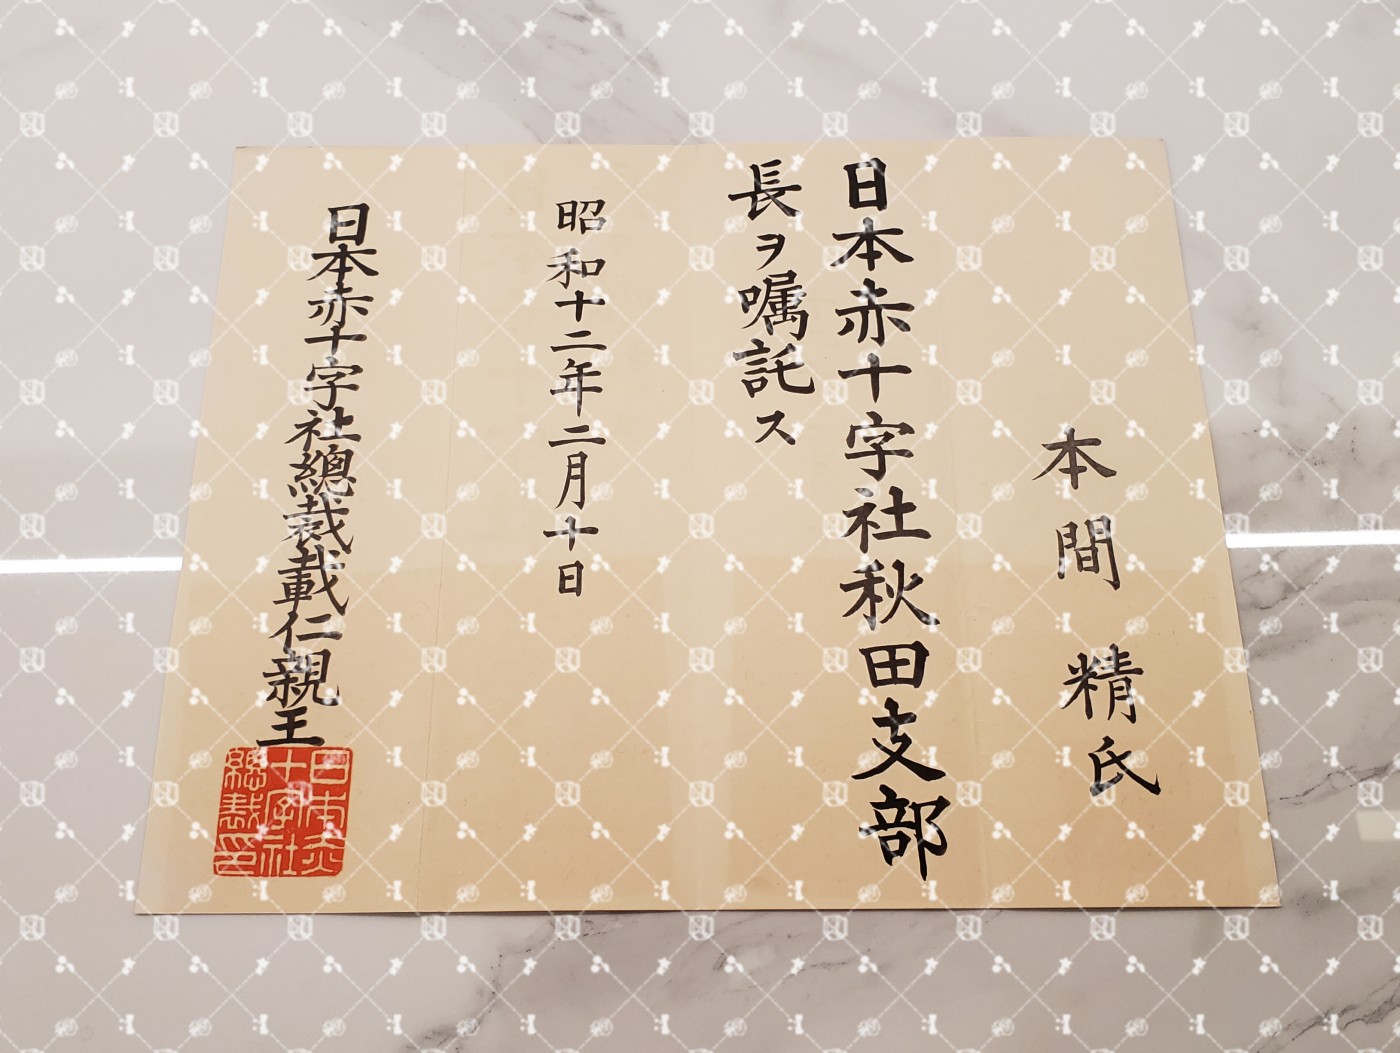 本間精氏
日本赤十字社秋田支部
長ヲ嘱託ス
昭和十二年二月十日
日本赤十字社總裁載仁親王
日本赤
十字社
總裁印